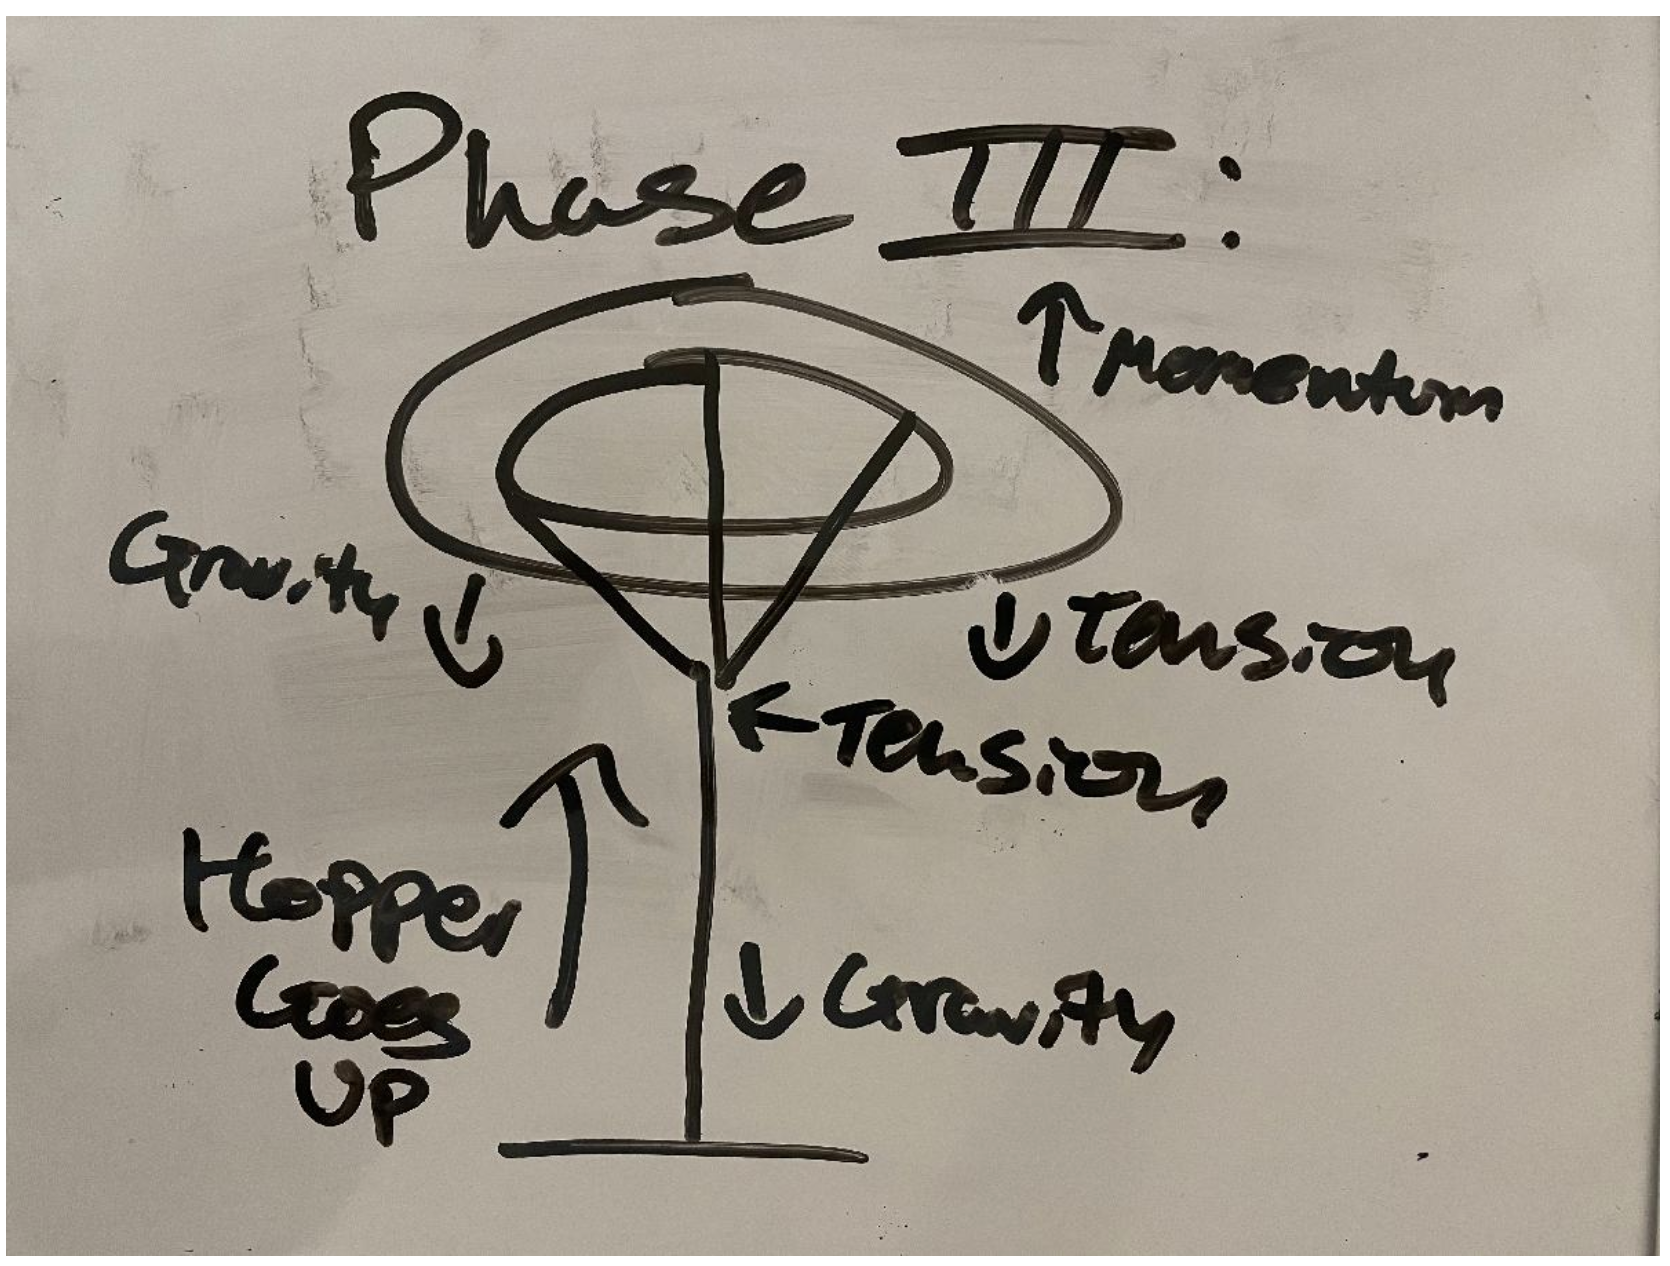 Phase III:
↑ Momentum
Gravity ↓
↓ Tension
← Tension
Hopper
Goes
Up
↓ Gravity